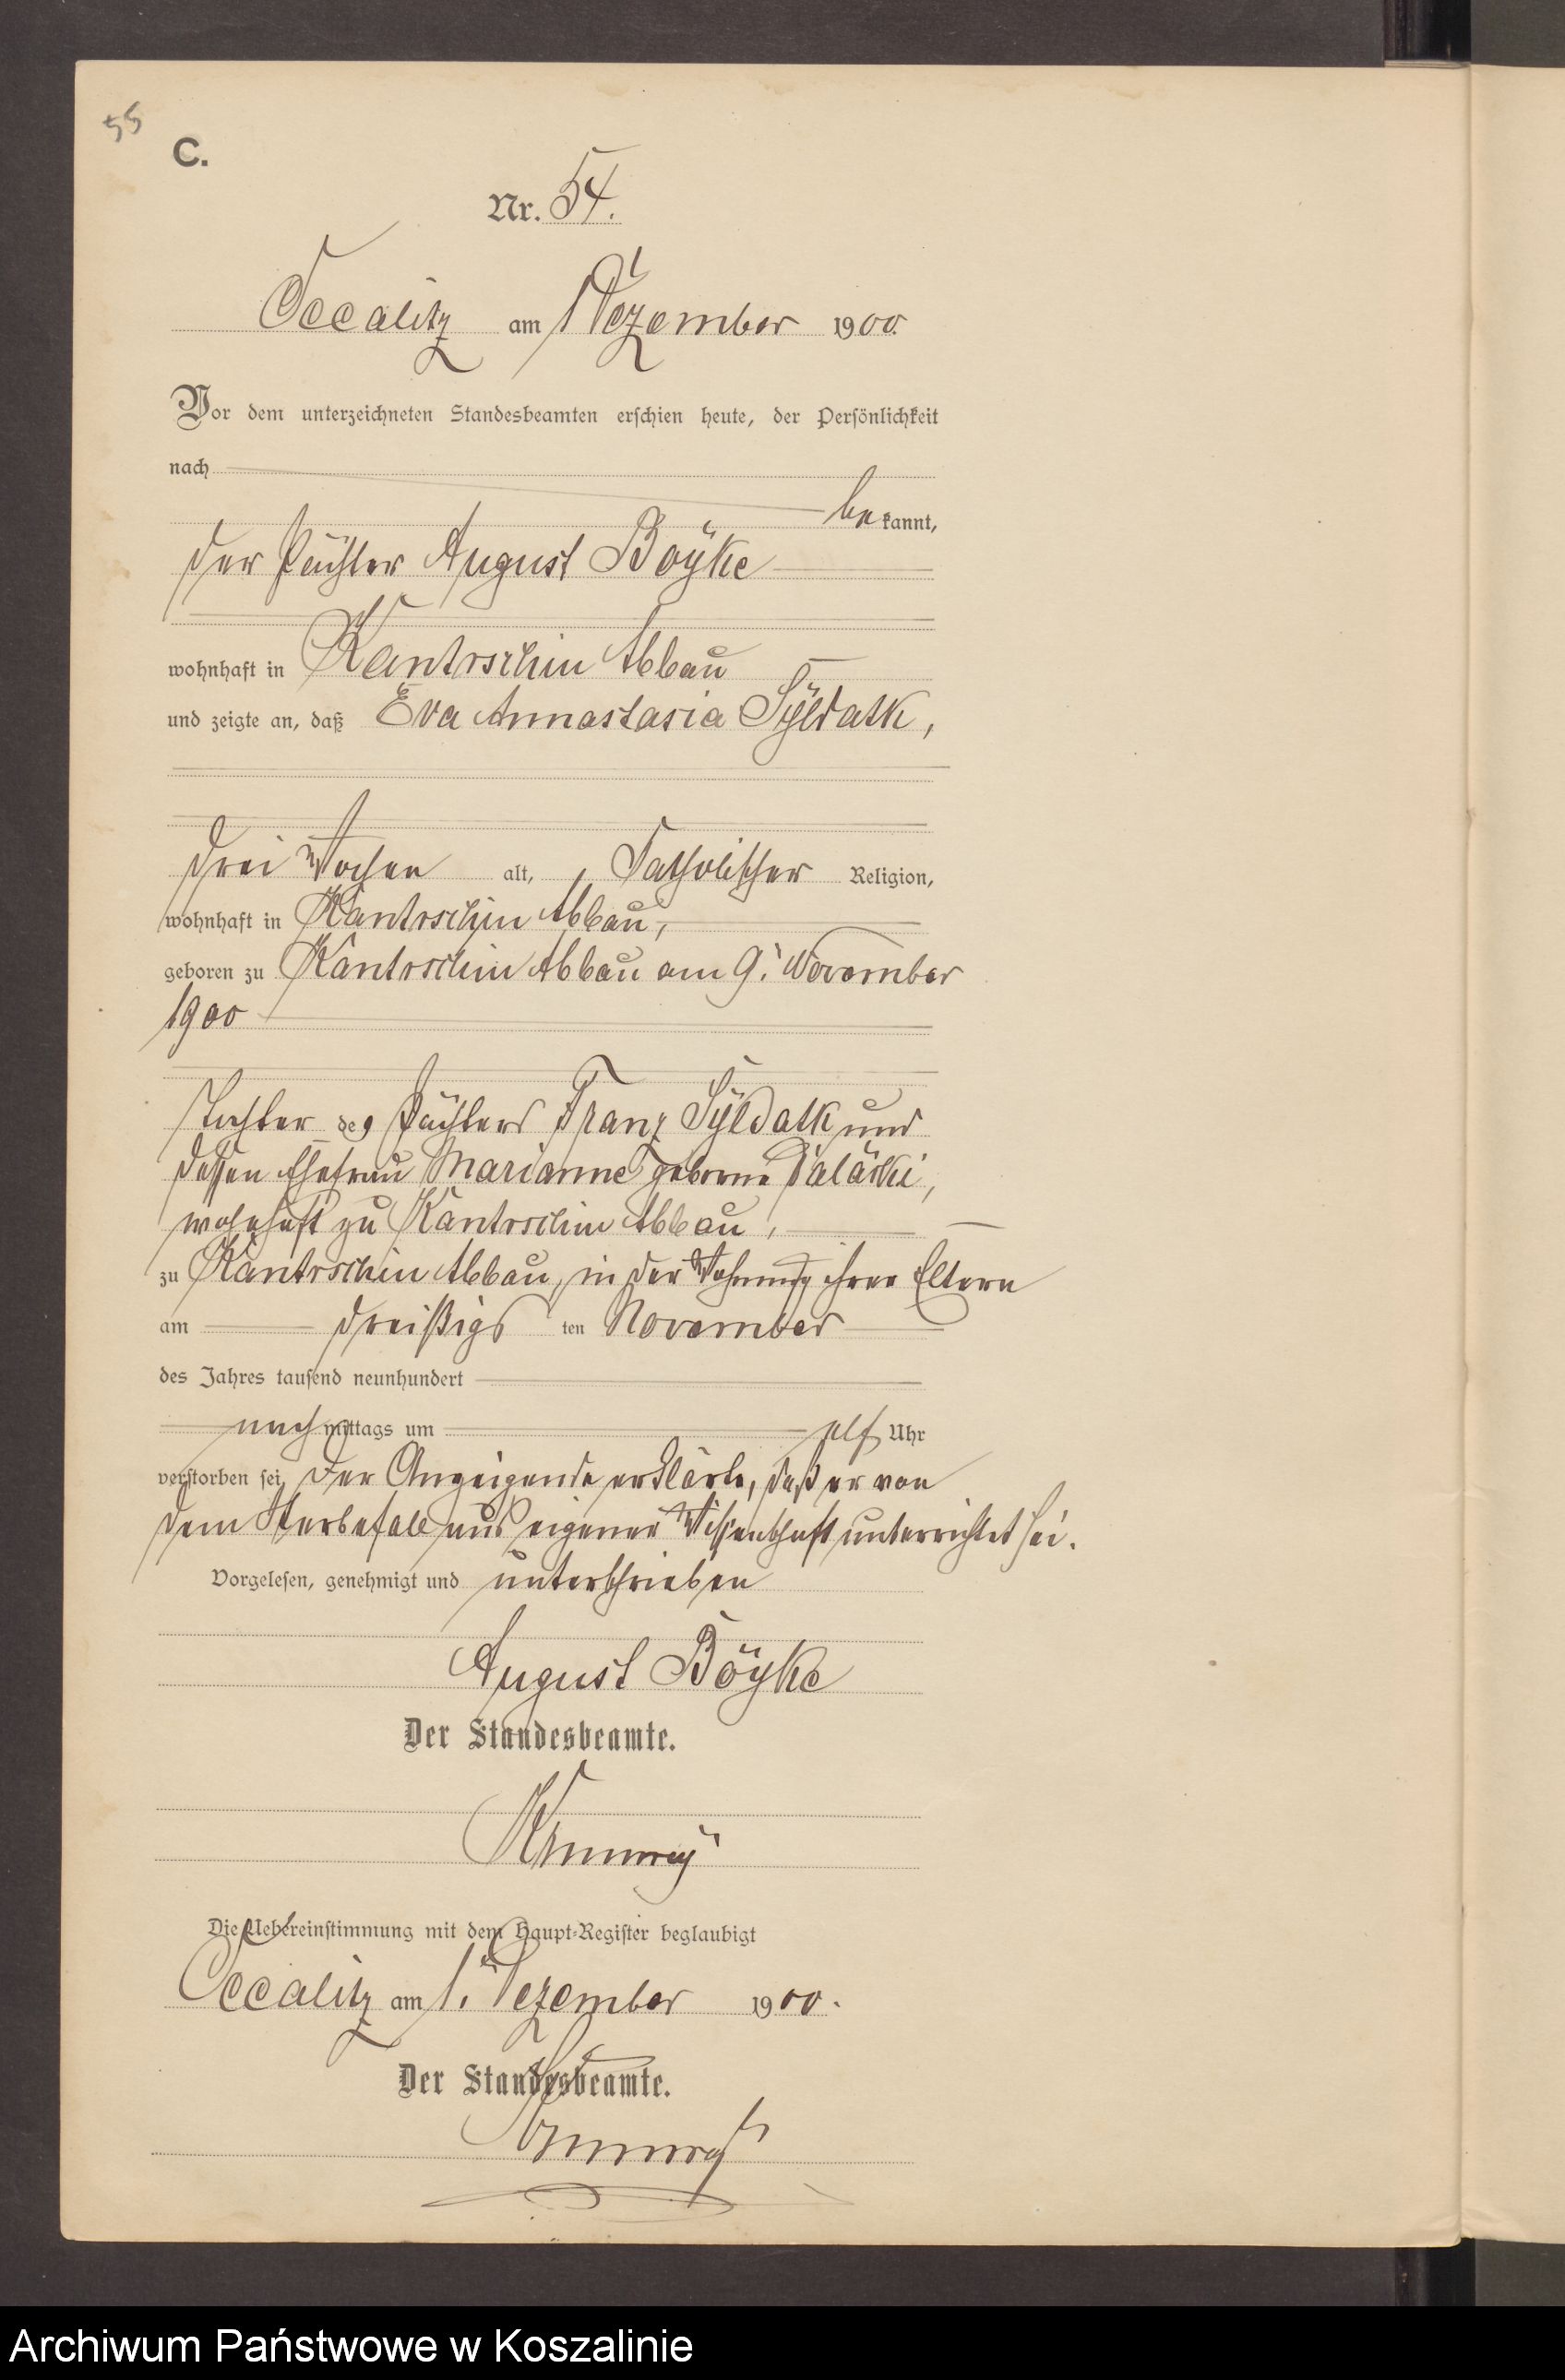 55
C.
Nr. 54.
Occalitz am 1 Dezember 1900.
Vor dem unterzeichneten Standesbeamten erschien heute, der Persönlichkeit
nach
bekannt,
der Pächter August Boÿke
wohnhaft in Kantrschin Abbau
und zeigte an, daß Eva Annastasia Sÿldatk,
drei Wochen alt, katholischer Religion,
wohnhaft in Kantrschin Abbau,
geboren zu Kantrschin Abbau am 9. November
1900
Tochter des Pächters Franz Sÿldatk und
dessen Ehefrau Marianne geborne
wohnhaft zu Kantrschin Abbau,
zu Kantrschin Abbau, in der Wohnung ihrer Eltern
am dreißigs ten November
des Jahres tausend neunhundert
nach mittags um elf Uhr
verstorben sei, der Anzeigende erklärte, daß er von
dem Sterbefall aus eigener Wissenschaft unterrichtet sei.
Vorgelesen, genehmigt und unterschrieben
August Böyke
Der Standesbeamte.
Die Uebereinstimmung mit dem Haupt-Register beglaubigt
Occalitz am 1. Dezember 1900.
Der Standesbeamte.
Archiwum Państwowe w Koszalinie